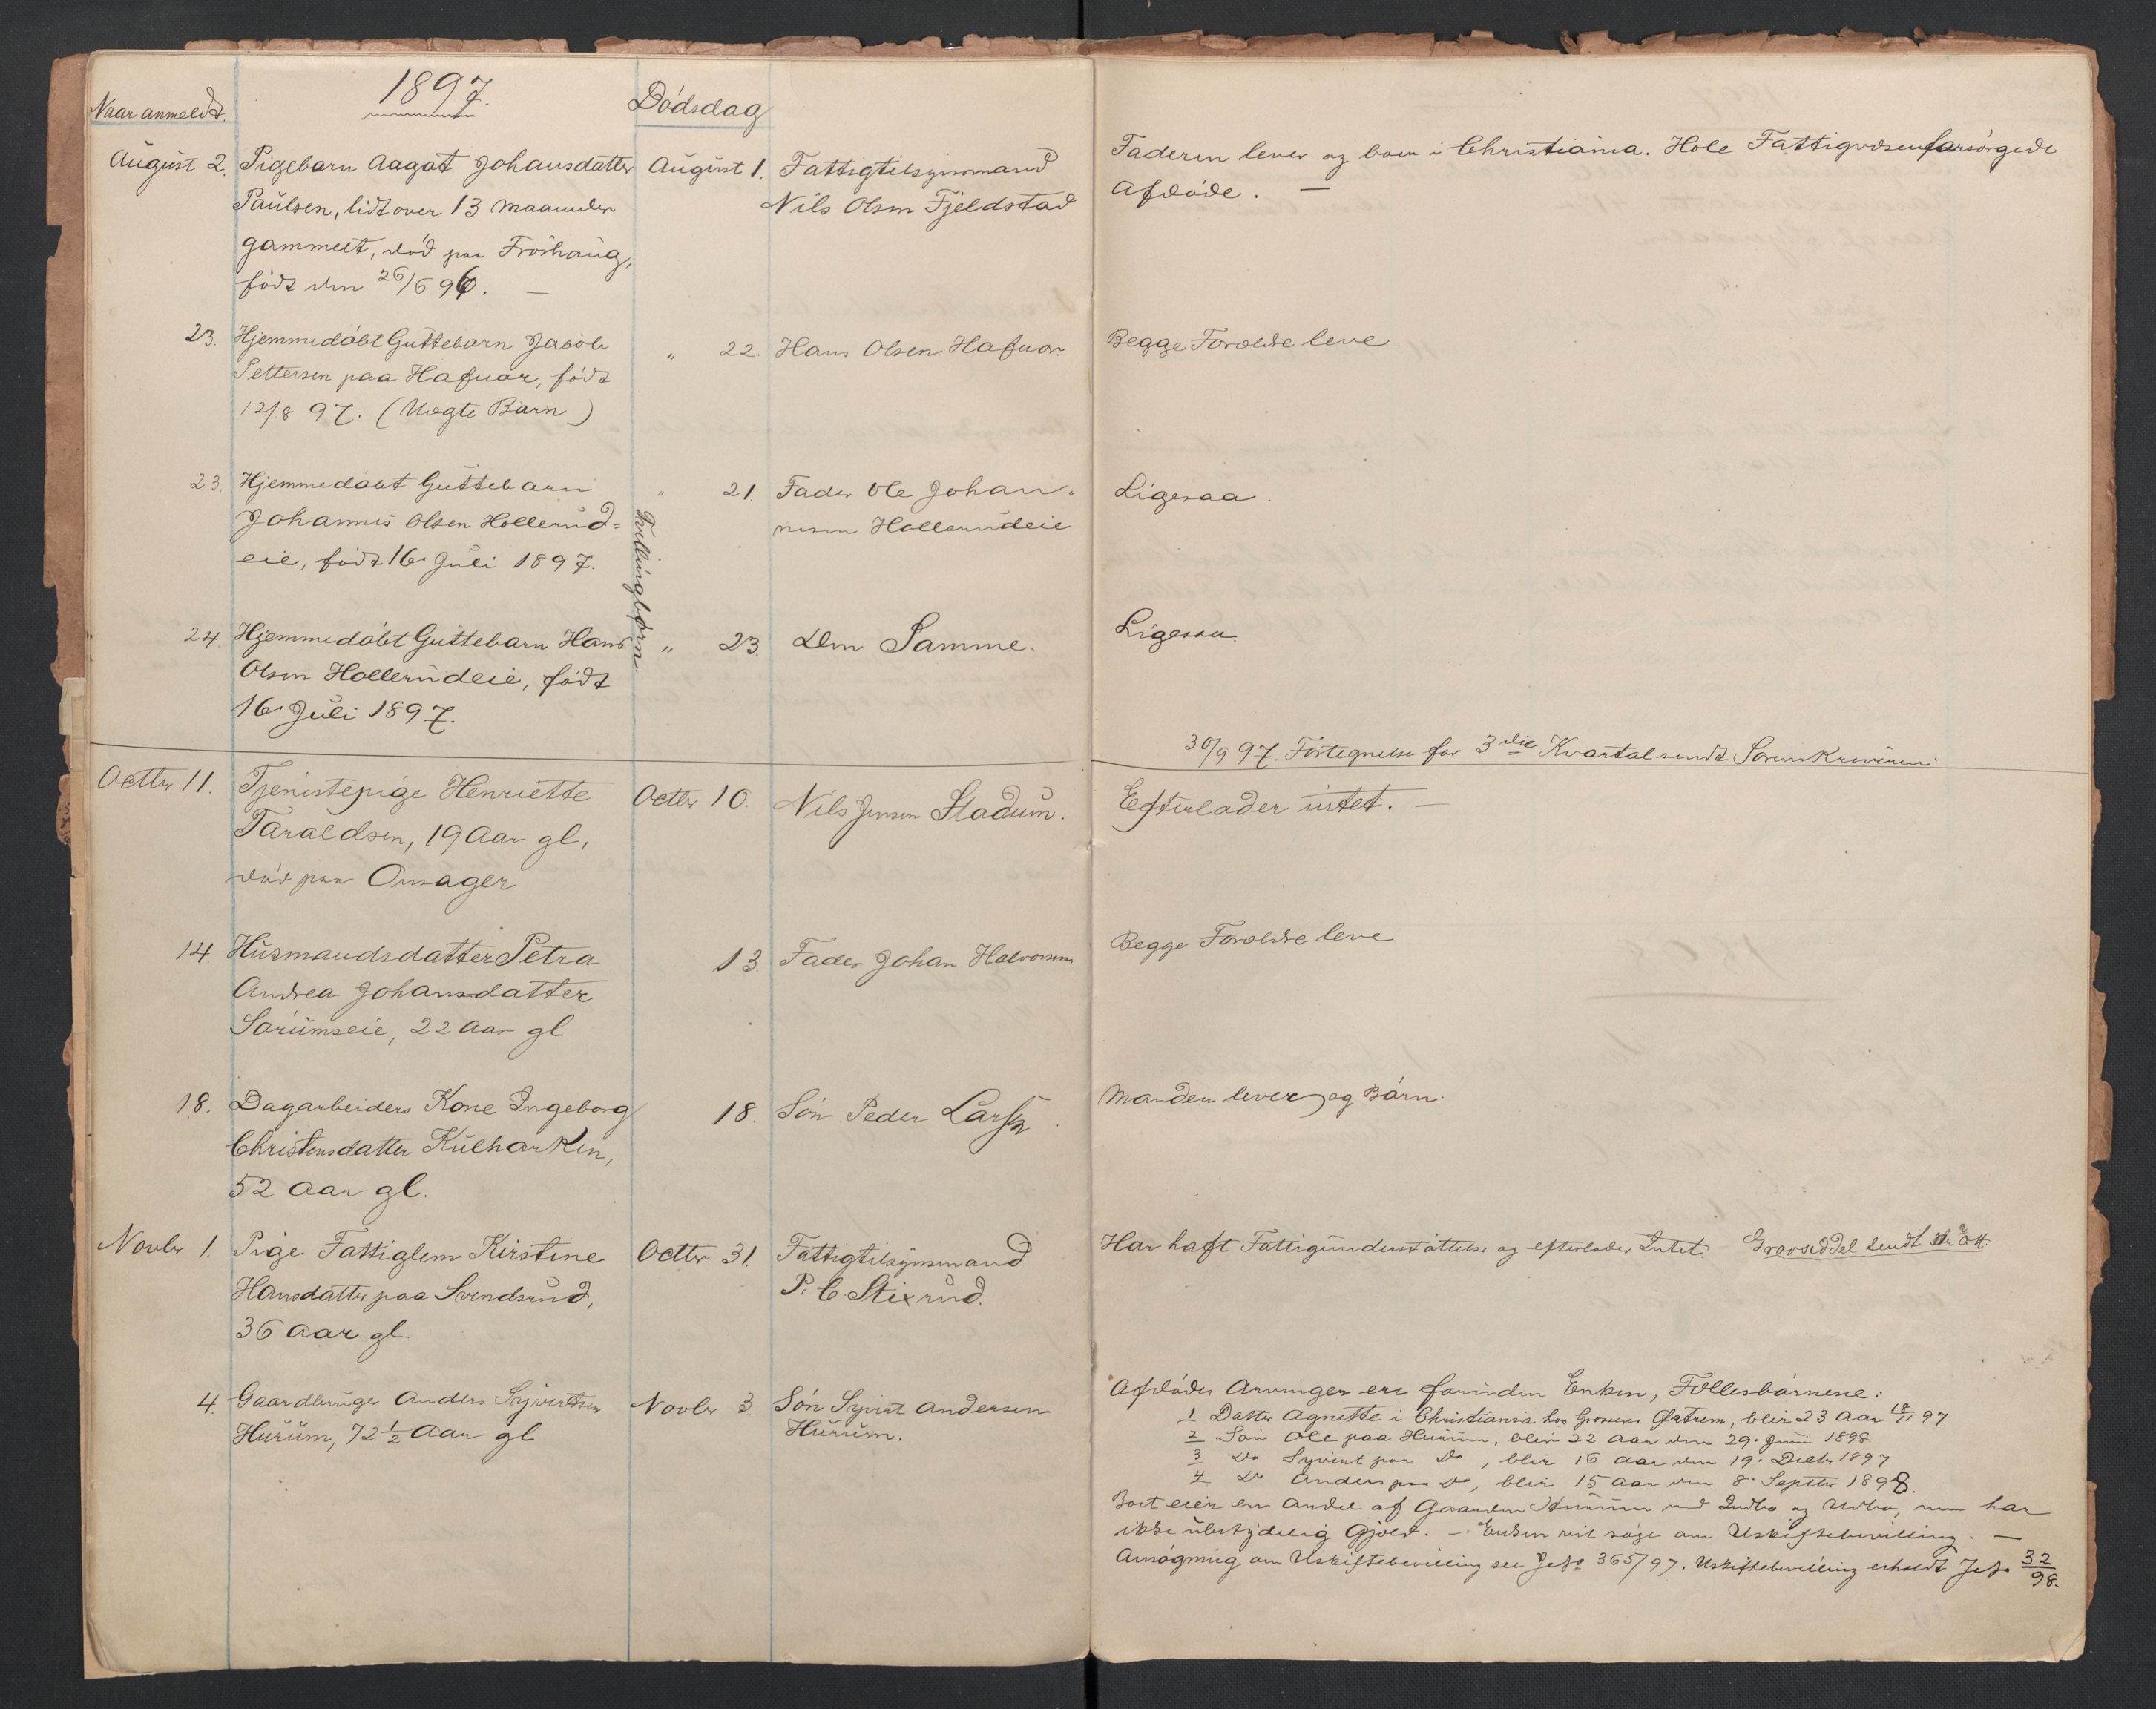 1897.
Naar anmeldt.
Dødsdag
August 2. Pigebarn Aagot Johansdatter August 1. Fattigtilsynsmand
Paulsen, lidt over 13 Maaneder Nils Olsen Fjeldstad
gammelt, død paa Frøshaug,
født den 26/6 96. —
Faderen lever og boer i Christiania. Hole Fattigvæsen forsørgede
Afdøde. —
23. Hjemmedøbt Guttebarn Jacob " 22. Hans Olsen Hafnor
Pettersen paa Hafnor, født
12/8 97. (Uægte Barn)
Begge Forældre leve
23. Hjemmedøbt Guttebarn " 21. Fader Ole Johan-
Johannes Olsen Hollerud= nesen Hollerudeie
eie, født 16. Juli 1897.
Ligesaa.
Tvillingbørn
24 Hjemmedøbt Guttebarn Hans " 23. Den Samme.
Olsen Hollerudeie, født
16. Juli 1897.
Ligesaa.
30/9 97. Fortegnelse for 3die Kvartal sendt Sorenskriveren.
Octbr 11. Tjenistepige Henriette Octbr 10. Nils Jensen Stadum.
Taraldsen, 19 Aar gl,
død paa Onsager
Efterlader intet. —
14. Husmandsdatter Petra 13. Fader Johan Halvorsen
Andrea Johansdatter
Sørumseie, 22 Aar gl
Begge Forældre leve
18. Dagarbeiders Kone Ingeborg 18. Søn Peder Larsen
Christensdatter Kulharken,
52 Aar gl.
Manden lever og Børn.
Novbr 1. Pige Fattiglem Kirstine Octbr 31. Fattigtilsynsmand
Hansdatter paa Svendsrud, P. C. Stixrud.
36 Aar gl.
Har haft Fattigunderstøttelse og efterlader Intet. Gravseddel sendt
4. Gaardbruger Anders Syvertsen Novbr 3. Søn Syvert Andersen
Hurum, 72 1/2 Aar gl Hurum.
Afdødes Arvinger ere foruden Enken, Fællesbørnene:
1 Datter Agnette i Christiania hos Grosserer Østrem, blir 23 Aar 18/11 97
2 Søn Ole paa Hurum, blir 22 Aar den 29. Juni 1898.
3 Do Syvert paa Do, blir 16 Aar den 19. Decbr 1897
4 Do Anders paa Do, blir 15 Aar den 8. Septbr 1898.
Boet eier en Andel af Gaarden Hurum med Indbo og Udbo, men har
ikke ubetydelig Gjæld. — Enken vil søge om Uskiftebevilling. —
Ansøgning om Uskiftebevilling see JNo 365/97. Uskiftebevilling erholdt JNo 32/98.